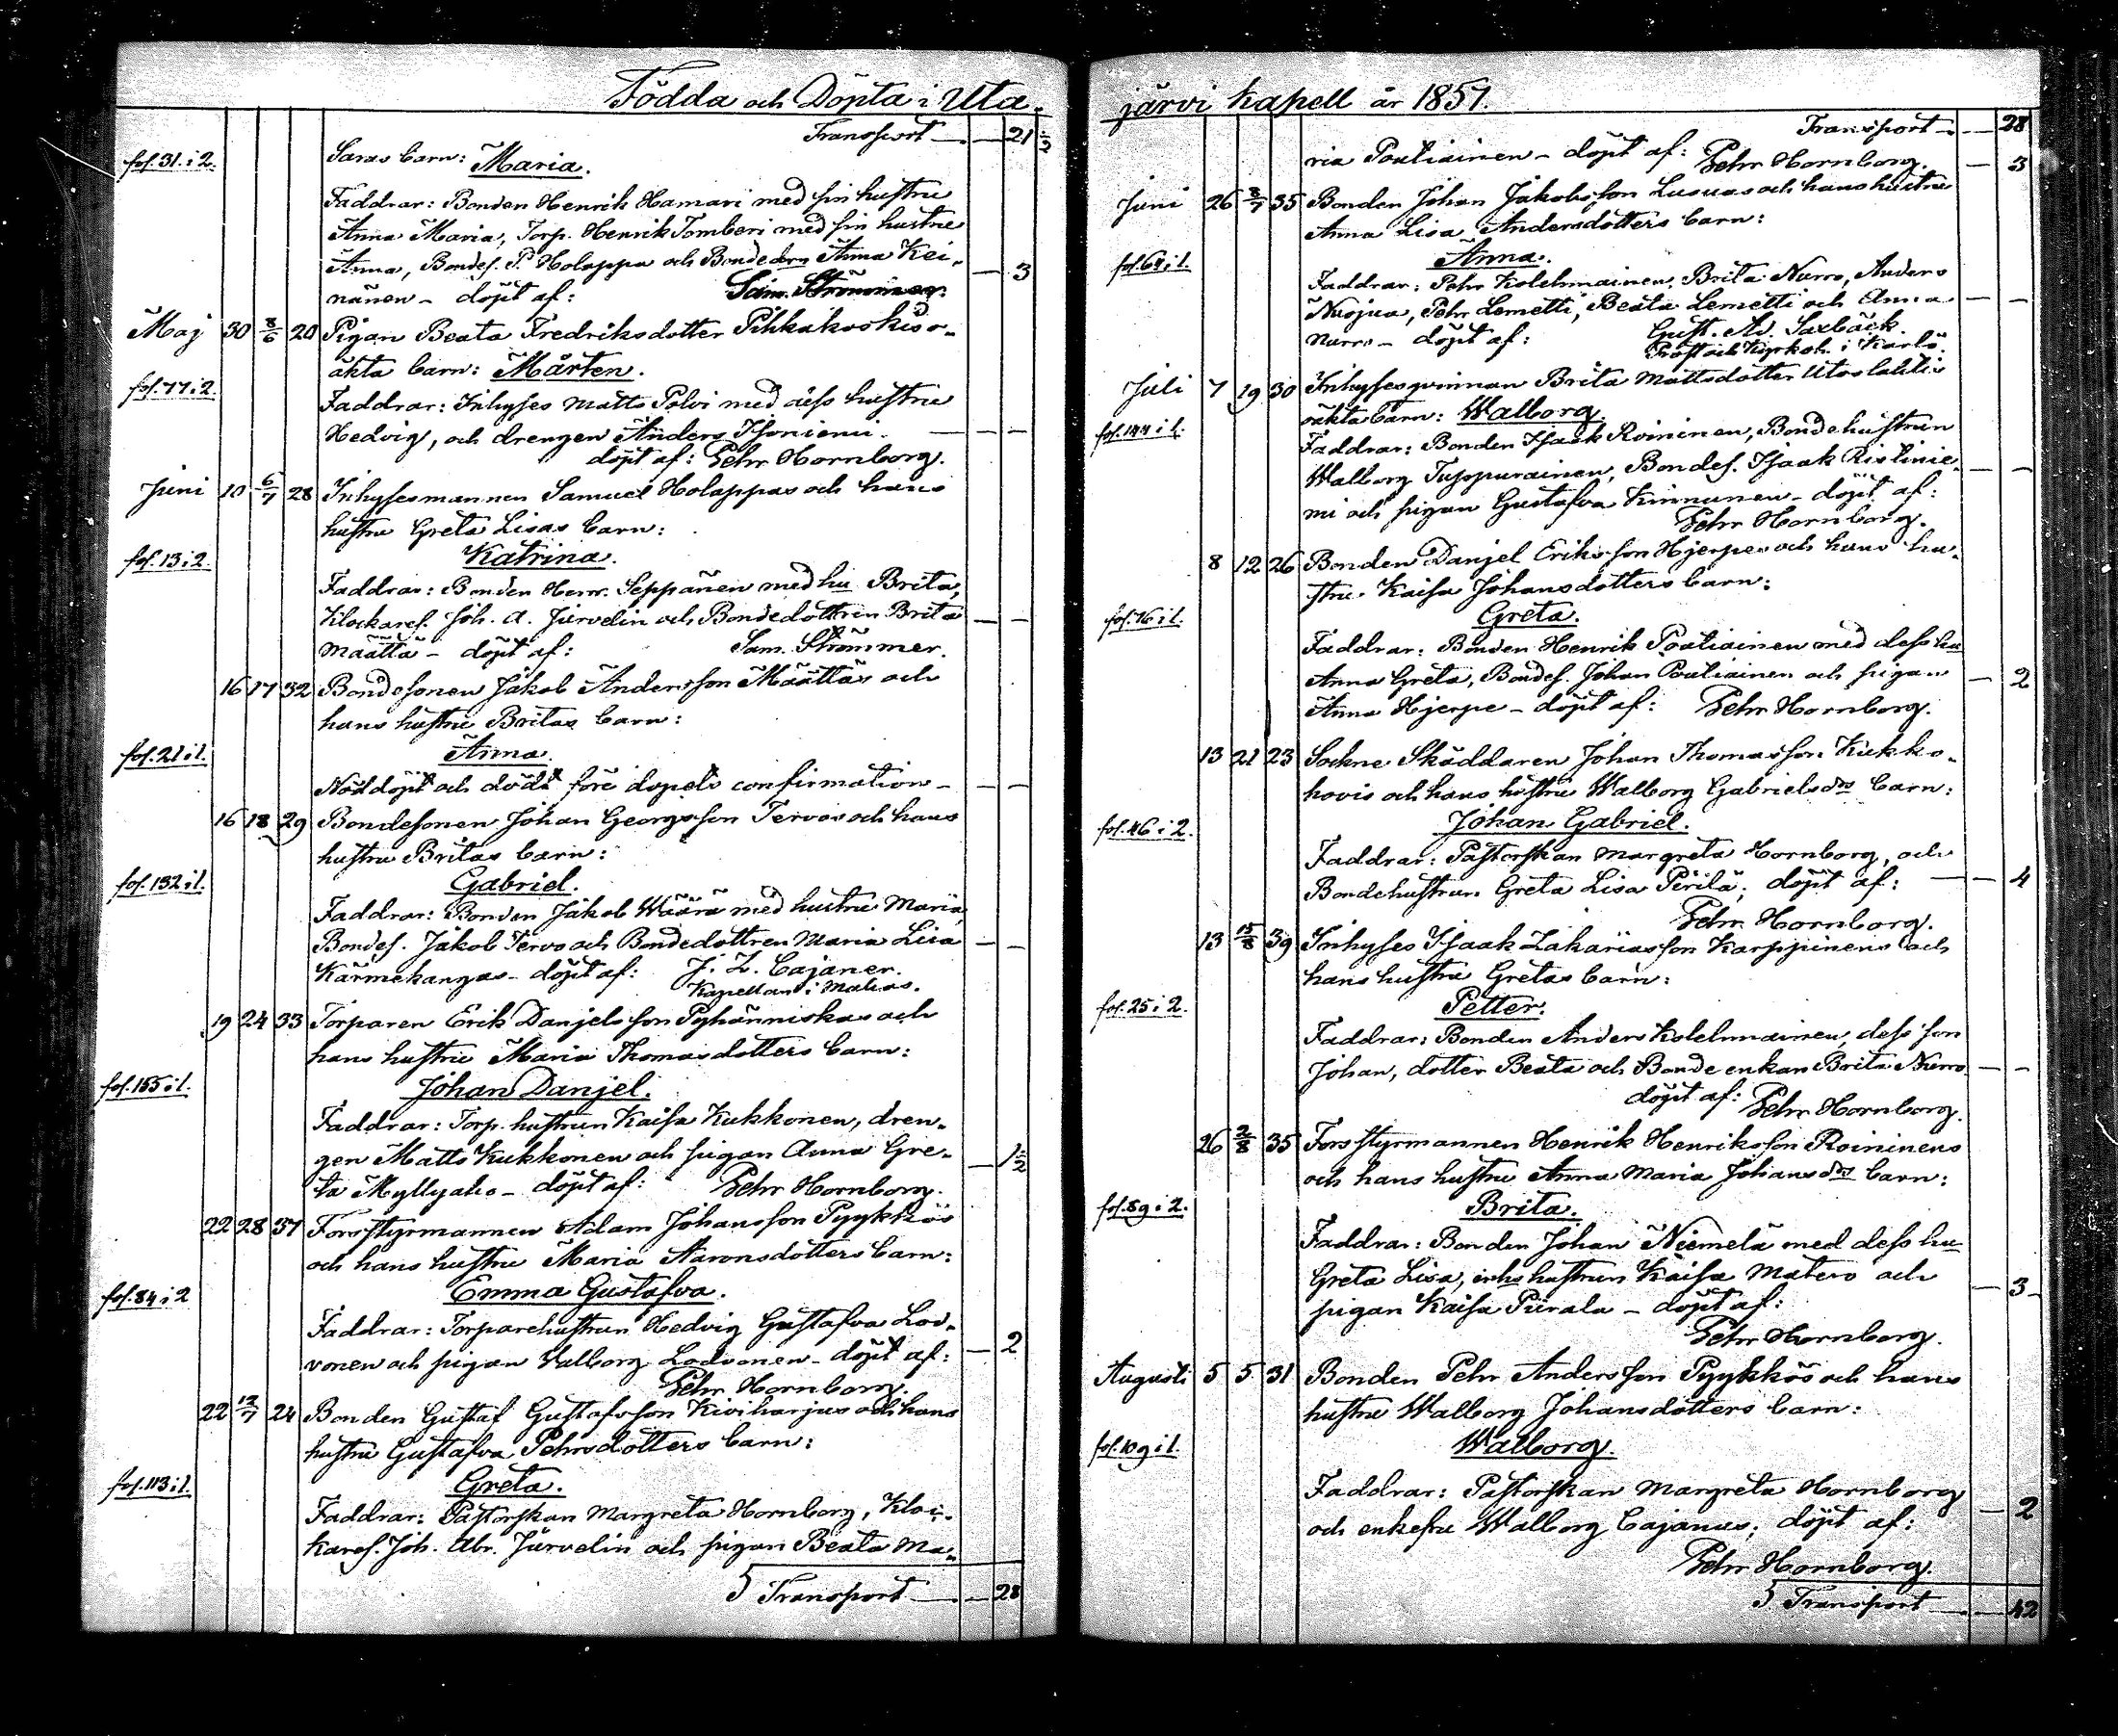 Födda och Döpta i Uta-
Transport — 21 ½
fol. 31. i 2. Saras barn: Maria.
Faddrar: Bonden Henrik Hamari med sin hustru
Anna Maria, Torp. Henrik Tomberi med sin hustru
Anna, Bondes. P. Holappa och Bondedrn Anna Kei-
nänen – döpt af: Sam. Strömmer. — 3
Maj 30 8/6 20 Pigan Beata Fredriksdotter Pihkakoskis o-
äkta barn: Mårten.
fol. 77 i 2.
Faddrar: Inhyses Matts Polvi med dess hustru
Hedvig, och drengen Anders Isoniemi. — —
döpt af: Pehr Hornborg.
Juni 10 6/7 28 Inhysesmannen Samuel Holappas och hans
hustru Greta Lisas barn:
fol. 13 i 2. Katrina.
Faddrar: Bonden Henr. Seppänen med hu Brita,
Klockares. Joh. A. Jurvelin och Bondedottren Brita — —
Määttä – döpt af: Sam. Strömmer.
16 17 32 Bondesonen Jakob Andersson Määttäs och
hans hustru Britas barn:
fol. 21 i 1. Anna.
Nöddöpt och dödt före dopets confirmation – — —
16 18 29 Bondesonen Johan Georgsson Tervos och hans
hustru Britas barn:
fol. 132 i 1. Gabriel.
Faddrar: Bonden Jakob Wäärä med hustru Maria,
Bondes. Jakob Tervo och Bondedottren Maria Lisa — —
Kärmekangas – döpt af: J. Z. Cajaner.
Kapellan i Muhos.
19 24 33 Torparen Erik Danjelsson Pyhänniskas och
hans hustru Maria Thomasdotters barn:
fol. 155 i 1. Johan Danjel.
Faddrar: Torp. hustrun Kaisa Kukkonen, dren-
gen Matts Kukkonen och pigan Anna Gre- — 1½
ta Myllyaho – döpt af: Pehr Hornborg.
22 28 37 Forsstyrmannen Adam Johansson Pyykkös
och hans hustru Maria Aaronsdotters barn:
fol. 84 i 2 Emma Gustafva.
Faddrar: Torparehustrun Hedvig Gustafva Lod-
vonen och pigan Walborg Lodvonen – döpt af: — 2
Pehr Hornborg.
22 12/7 24 Bonden Gustaf Gustafsson Kiviharjus och hans
hustru Gustafva Pehrsdotters barn:
fol. 113 i 1. Greta.
Faddrar: Pastorskan Margreta Hornborg, Kloc-
kares. Joh. Abr. Jurvelin och pigan Beata Ma-
Transport — 28
järvi Kapell år 1857.
Transport — 28
ria Poutiainen – döpt af: Pehr Hornborg. — 3
Juni 26 8/7 35 Bonden Johan Jakobsson Lusuas och hans hustru
Anna Lisa Andersdotters barn:
fol. 64 i 1. Anna.
Faddrar: Pehr Kolehmainen, Brita Nurro, Anders
Nuojua, Pehr Lemetti, Beata Lemetti och Anna — —
Nurro – döpt af: Gust. Ad. Saxbäck.
Prost och Kyrkoh. i Karlö.
Juli 7 19 30 Inhysesqvinnan Brita Mattsdotter Utoslahtis
oäkta barn: Walborg.
fol. 144 i 1. Faddrar: Bonden Isaak Roininen, Bondehustrun
Walborg Tuppurainen, Bondes. Isaak Ristinie- — —
mi och pigan Gustafva Kinnunen – döpt af:
Pehr Hornborg.
8 12 26 Bonden Danjel Eriksson Hjerpes och hans hu-
stru Kaisa Johansdotters barn:
fol. 76 i 1. Greta.
Faddrar: Bonden Henrik Poutiainen med dess hu
Anna Greta, Bondes. Johan Poutiainen och pigan — 2
Anna Hjerpe – döpt af: Pehr Hornborg.
13 21 23 Sockne Skäddaren Johan Thomasson Kukko-
hovis och hans hustru Walborg Gabrielsdrs barn:
fol. 46 i 2. Johan Gabriel.
Faddrar: Pastorskan Margreta Hornborg, och
Bondehustrun Greta Lisa Perilä; döpt af: — 4
Pehr Hornborg.
13 15/8 39 Inhyses Isaak Zakariasson Karppinens och
hans hustru Gretas barn:
fol. 25 i 2. Petter.
Faddrar: Bonden Anders Kolehmainen, dess son
Johan, dotter Beata och Bonde enkan Brita Nurro — —
döpt af: Pehr Hornborg.
26 2/8 35 Forsstyrmannen Henrik Henriksson Roininens
och hans hustru Anna Maria Johansdrs barn:
fol. 89 i 2. Brita.
Faddrar: Bonden Johan Niemelä med dess hu
Greta Lisa, inhs hustrun Kaisa Matero och — 3
pigan Kaisa Piirala – döpt af:
Pehr Hornborg.
Augusti 5 5 31 Bonden Pehr Andersson Pyykkös och hans
hustru Walborg Johansdotters barn:
fol. 109 i 1. Walborg.
Faddrar: Pastorskan Margreta Hornborg — 2
och enkefru Walborg Cajanus; döpt af:
Pehr Hornborg.
Transport — 42